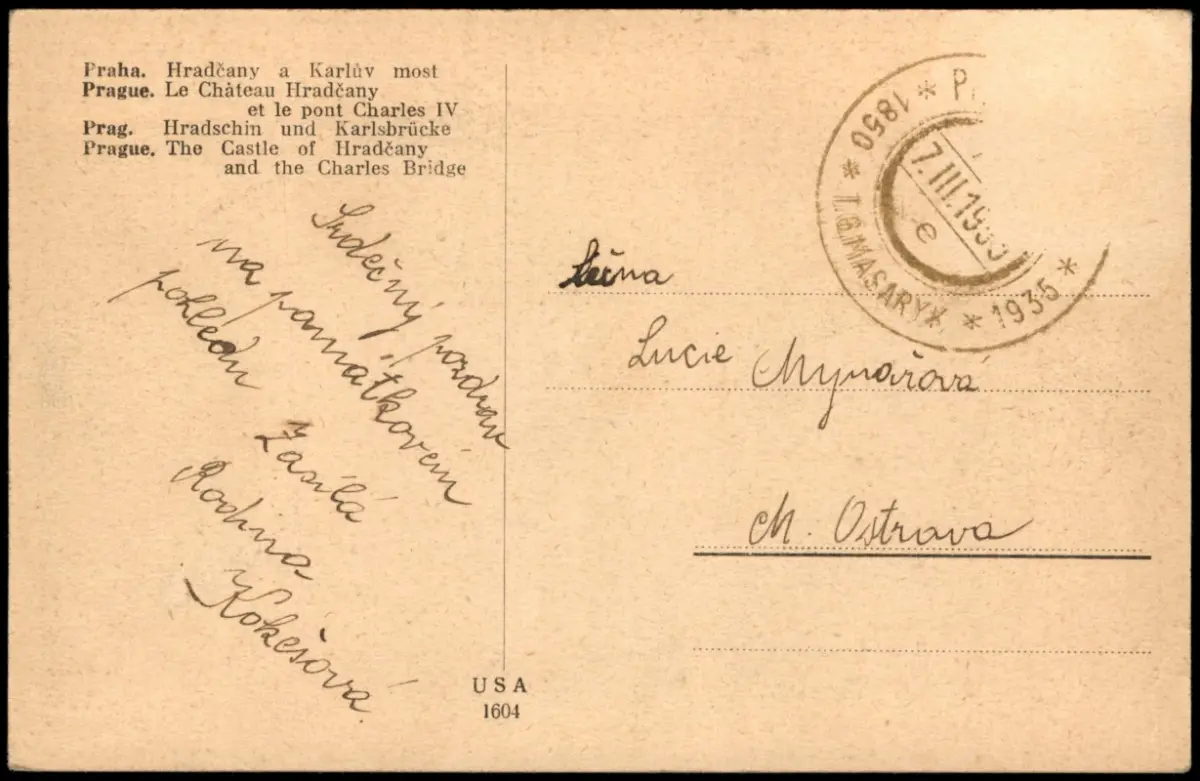 Praha. Hradčany a Karlův most
Prague. Le Château Hradčany
et le pont Charles IV
Prag. Hradschin und Karlsbrücke
Prague. The Castle of Hradčany
and the Charles Bridge
Srdečný pozdrav
na památkovém
pohledu
Zasílá
Rodina
Kokešová
USA
1604
1850 * P
7.III.1935
e
* T.G.MASARYK * 1935 *
slečna
Lucie Mynářová
M. Ostrava